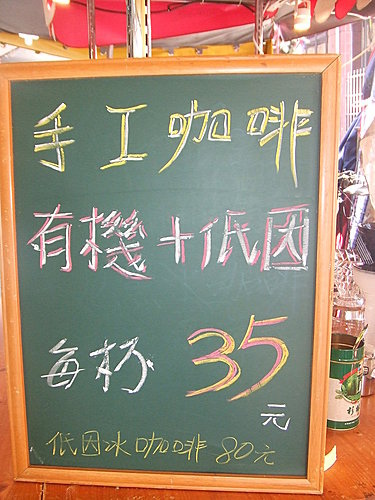 手工咖啡
有機+低因
每杯35元
低因冰咖啡 80元